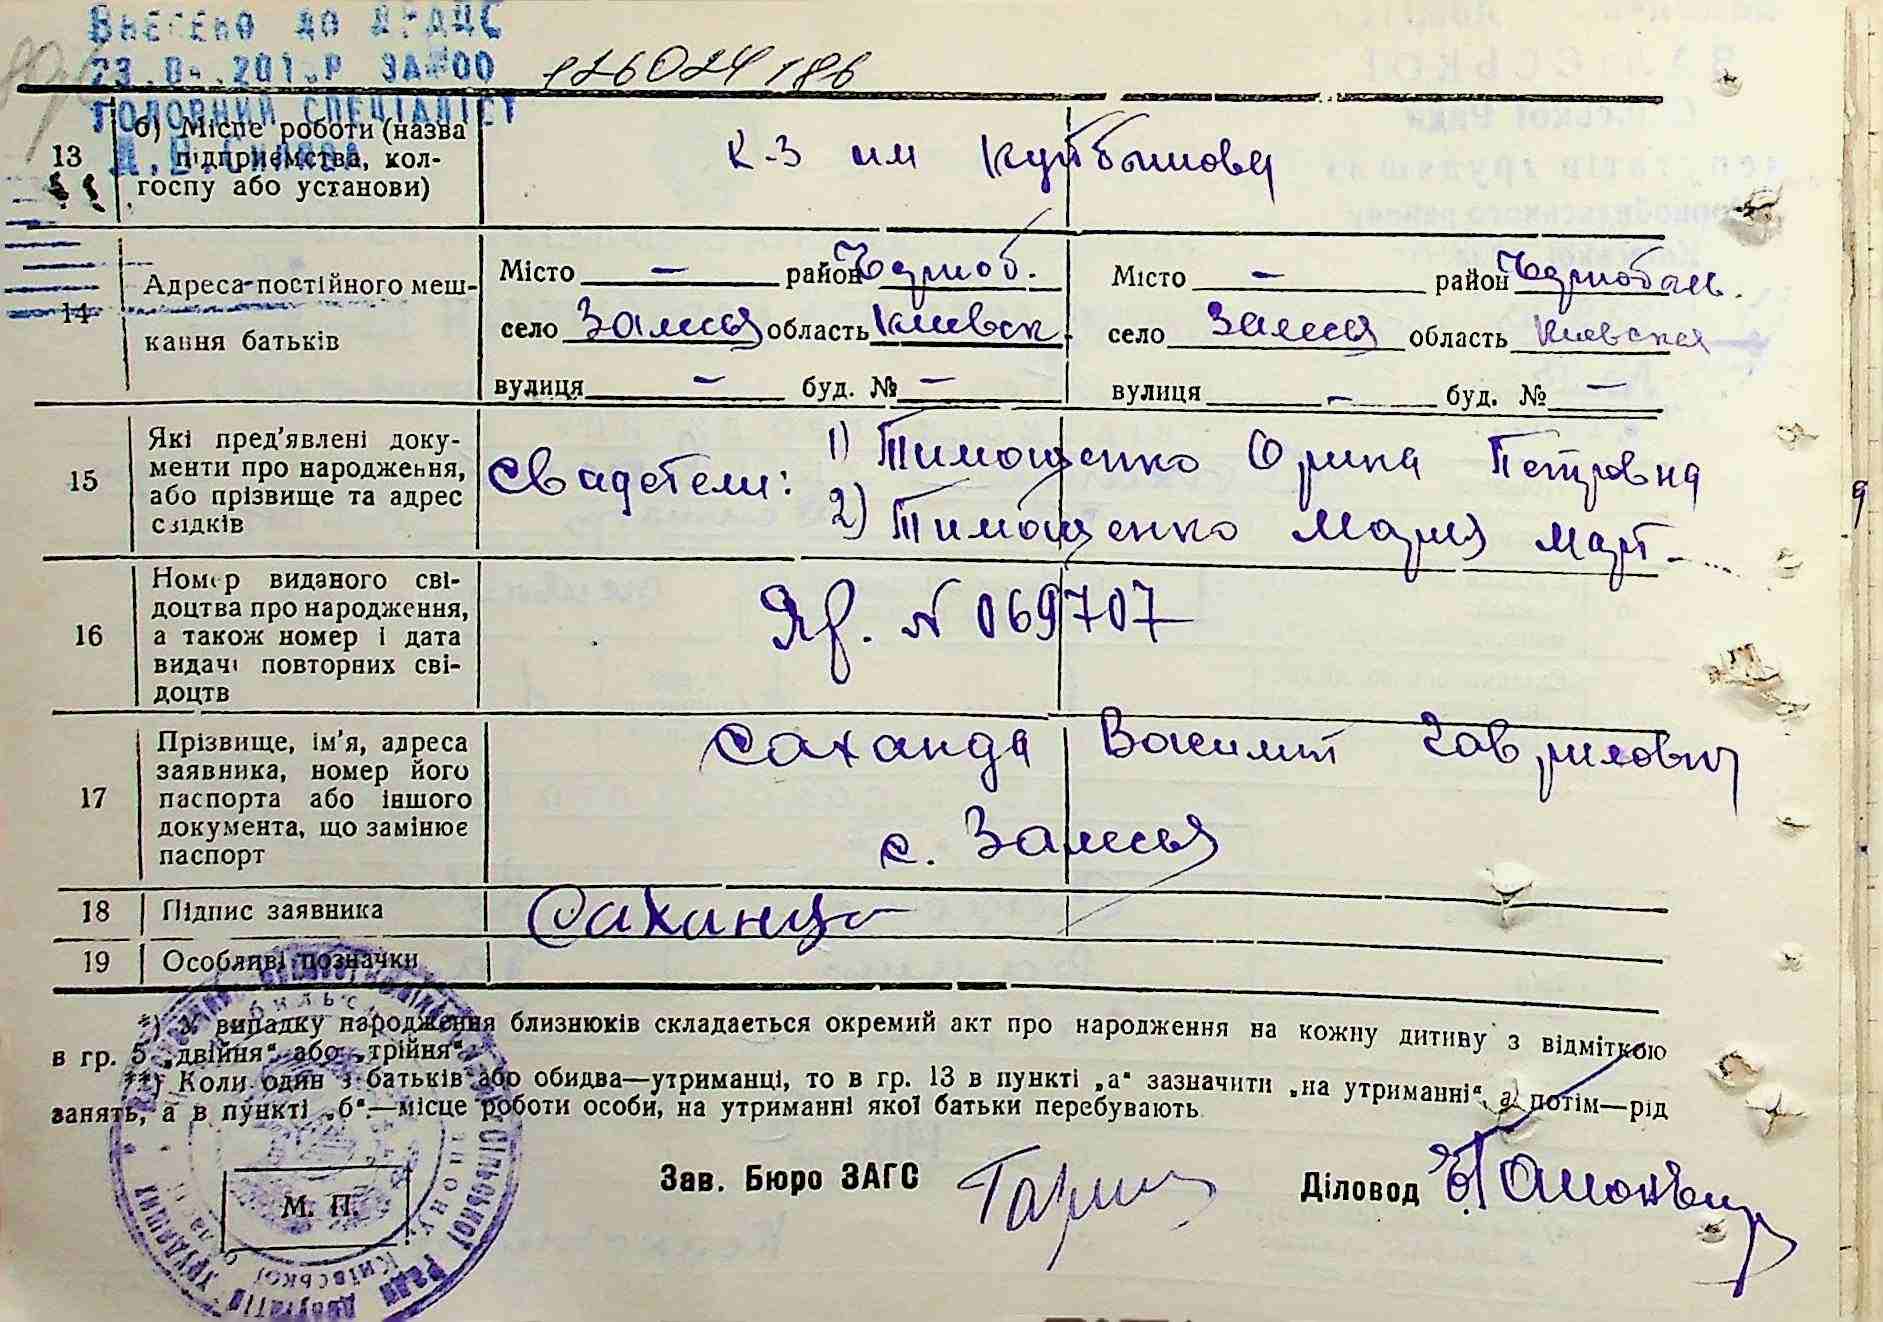 ВНЕСЕНО ДО ДРАЦС
ЗА №00 126024186
ГОЛОВНИЙ СПЕЦІАЛІСТ
13 б) Місце роботи (назва підприємства, кол-
госпу або установи)
к-з им Куйбышова
14 Адреса постійного меш-
кання батьків
Місто — район Черноб.
село Залесья область Киевск
вулиця — буд. № —
Місто — район Чернобыл.
село Залесья область Киевская
вулиця — буд. № —
15 Які пред'явлені доку-
менти про народження,
або прізвище та адрес
свідків
Свидетели: 1) Тимощенко Орина Петровна
2) Тимощенко Мария Март
16 Номер виданого сві-
доцтва про народження,
а також номер і дата
видачі повторних сві-
доцтв
№ 069707
17 Прізвище, ім'я, адреса
заявника, номер його
паспорта або іншого
документа, що замінює
паспорт
Саханда Василий Гаврилович
с. Залесья
18 Підпис заявника
Саханда
19 Особливі позначки
*) У випадку народження близнюків складається окремий акт про народження на кожну дитину з відміткою
в гр. 5 „двійня“ або „трійня“.
**) Коли один з батьків або обидва—утриманці, то в гр. 13 в пункті „а“ зазначити „на утриманні“, а потім—рід
занять, а в пункті „б“—місце роботи особи, на утриманні якої батьки перебувають.
Зав. Бюро ЗАГС
Діловод
М. П.
Сільської Ради Депутатів Трудящих
Київської